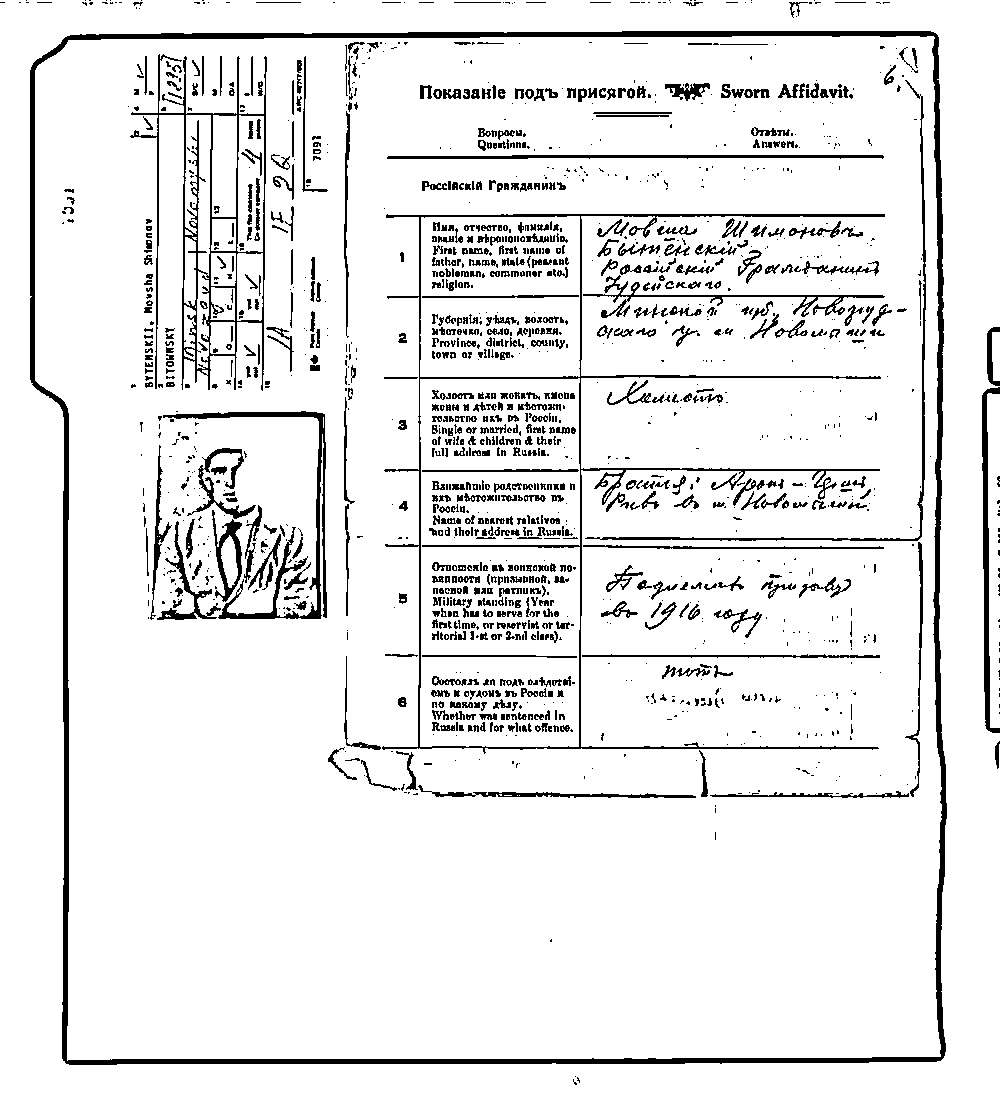 6.
Показанiе подъ присягой. Sworn Affidavit.
Вопросы. Отвѣты.
Questions. Answers.
Россiйскiй Гражданинъ
1
Имя, отчество, фамилiя,
званiе и вѣроисповѣданiе.
First name, first name of
father, name, state (peasant
nobleman, commoner etc.)
religion.
Мовша Шимоновъ
Бытенскiй
Россiйскiй Гражданинъ
Iудейскаго.
2
Губернiя, уѣздъ, волость,
мѣстечко, село, деревня.
Province, district, county,
town or village.
Минской губ. Новогруд-
скаго у. м Новомыши
3
Холостъ или женатъ, имена
жены и дѣтей и мѣстожи-
тельство ихъ въ Россiи.
Single or married, first name
of wife & children & their
full address in Russia.
Холостъ
4
Ближайшiе родственники и
ихъ мѣстожительство въ
Россiи.
Name of nearest relatives
and their address in Russia.
Братья: Аронъ-
въ м. Новомыши.
5
Отношенiе къ воинской по-
винности (призывной, за-
пасной или ратникъ).
Military standing (Year
when has to serve for the
first time, or reservist or ter-
ritorial 1-st or 2-nd class).
Подлежитъ призыву
въ 1916 году
6
Состоялъ ли подъ слѣдствi-
емъ и судомъ въ Россiи и
по какому дѣлу.
Whether was sentenced in
Russia and for what offence.
BYTENSKII, Movsha Shimonov
BITOWNSKY
Minsk
Novomyshi
1A 1F 2Q
7093